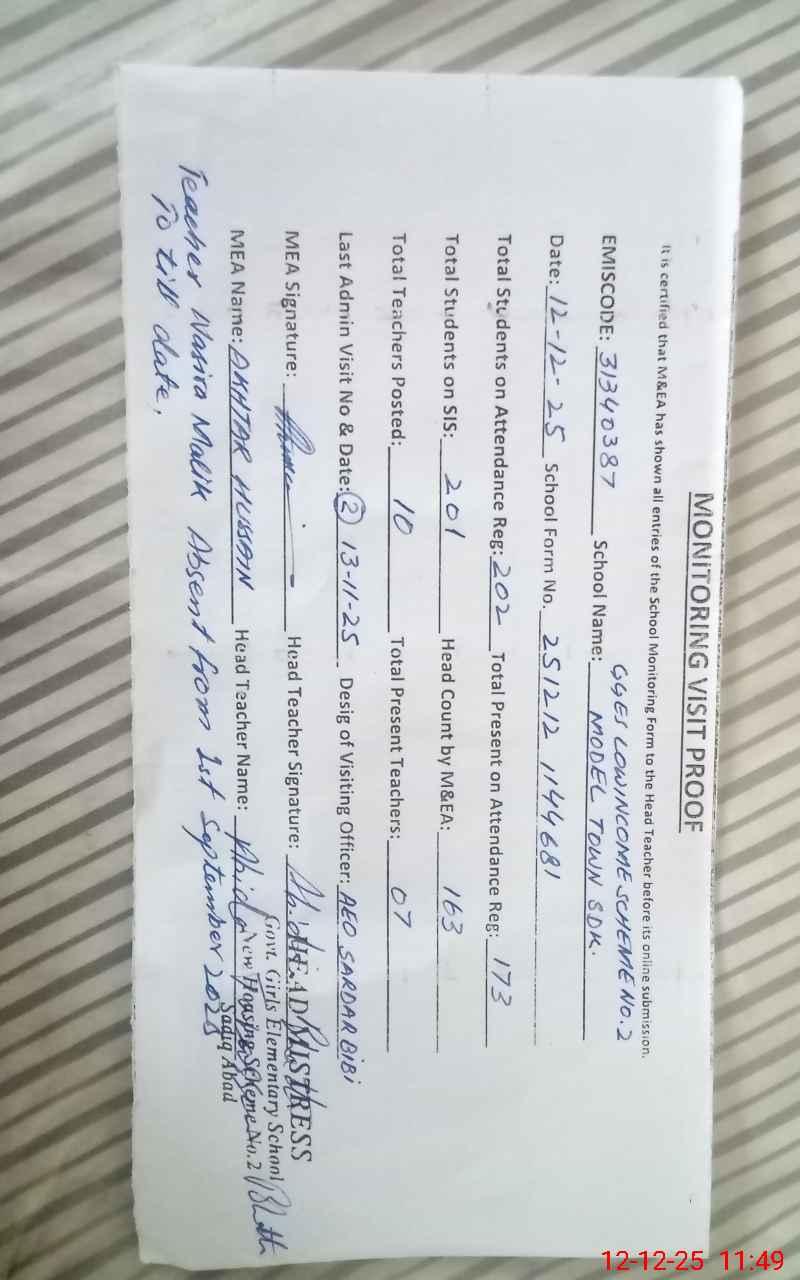 MONITORING VISIT PROOF
It is certified that M&EA has shown all entries of the School Monitoring Form to the Head Teacher before its online submission.
EMISCODE: 31340387 School Name: GGES LOWINCOME SCHEME No. 2 MODEL TOWN SDK.
Date: 12-12-25 School Form No. 251212 1144681
Total Students on Attendance Reg: 202 Total Present on Attendance Reg: 173
Total Students on SIS: 201 Head Count by M&EA: 163
Total Teachers Posted: 10 Total Present Teachers: 07
Last Admin Visit No & Date: (2) 13-11-25 Desig of Visiting Officer: AEO SARDAR BIBI
MEA Signature: Head Teacher Signature:
HEADMISTRESS
Govt. Girls Elementary School
New Housing Scheme No. 2
Sadiq Abad
MEA Name: AKHTAR HUSSAIN Head Teacher Name: Abida
Teacher Nasira Malik Absent from 1st September 2025
To till date.
12-12-25 11:49